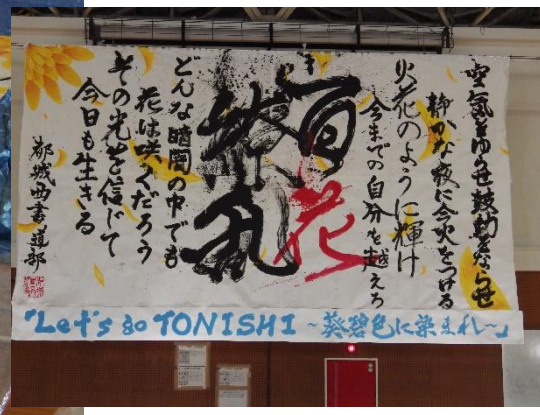 空気をゆらせ鼓動をならせ
静かな夜に今火をつける
火花のように輝け
今までの自分を越えろ
百花
繚乱
どんな暗闇の中でも
花は咲くだろう
その光を信じて
今日も生きる
都城西書道部
「Let's go TONISHI ～葵碧色に染まれ～」